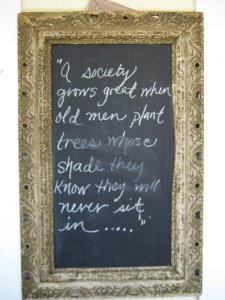 "A society
grows great when
old men plant
trees whose
shade they
know they will
never sit
in ....."